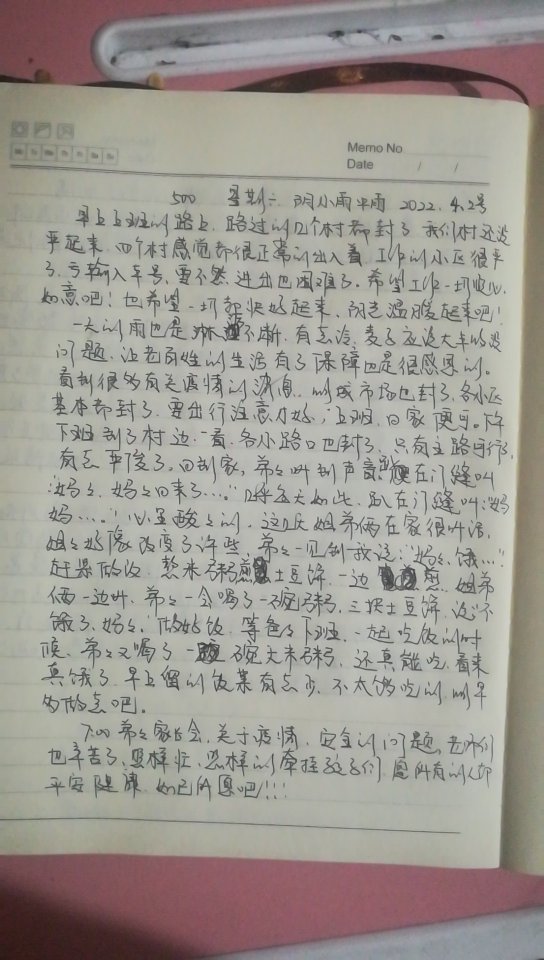 Memo No
Date / /
500 星期六 阴小雨中雨 2022.4.2号
早上上班的路上,路过的几个村都封了,我们村还没
严起来,四个村感觉都很正常的出入着,工作的小区很严
了,亏输入车号,要不然,进出也困难了。希望工作一切顺心
如意吧!也希望一切都快好起来,阳光温暖起来吧!
一天的雨也是淋漓不断,有点冷,麦子应没大旱的说
问题,让老百姓的生活有了保障也是很感恩的。
看到很多有关疫情的消息,城市场也封了,各小区
基本都封了,要出行注意力好,上班、回家便可。下午
下班到了村边一看,各小路口也封了,只有主路可行了,
有点严峻了。回到家,弟弟叫到声音爬在门缝叫
“妈妈,妈妈回来了…。”每天如此,趴在门缝叫:“妈
妈…。”心里酸酸的,这几天姐弟俩在家很听话,
姐姐好像改变了许些,弟弟一见到我说:“妈妈,饿…”
赶紧做饭,熬米粥煎土豆饼,一边煎,姐弟
俩一边叫,弟弟一会喝了一碗粥,三块土豆饼,说“不
饿了,妈妈。”做好饭,等爸爸下班,一起吃饭的时
候,弟弟又喝了一碗大米粥,还真能吃,看来
真饿了,早上留的饭菜有点少,不太够吃的,明早
多做点吧。
7:00弟弟家长会,关于疫情,安全的问题,老师们
也辛苦了,照样忙,照样的牵挂孩子们,愿所有的人都
平安健康,如己所愿吧!!!